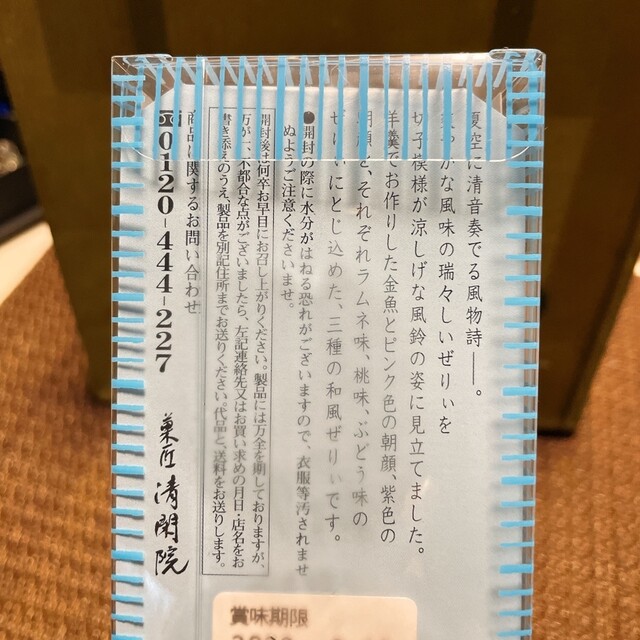 夏空に清音奏でる風物詩――。
やかな風味の瑞々しいぜりぃを
切子模様が涼しげな風鈴の姿に見立てました。
羊羹でお作りした金魚とピンク色の朝顔、紫色の
朝顔を、それぞれラムネ味、桃味、ぶどう味の
ぜりぃにとじ込めた、三種の和風ぜりぃです。
●開封の際に水分がはねる恐れがございますので、衣服等汚されませ
ぬようご注意くださいませ。
開封後は何卒お早目にお召し上がりください。製品には万全を期しておりますが、
万が一、不都合な点がございましたら、左記連絡先又はお買い求めの月日・店名をお
書き添えのうえ、製品を別記住所までお送りください。代品と、送料をお送りします。
商品に関するお問い合わせ
0120-444-227
菓匠 清閑院
賞味期限